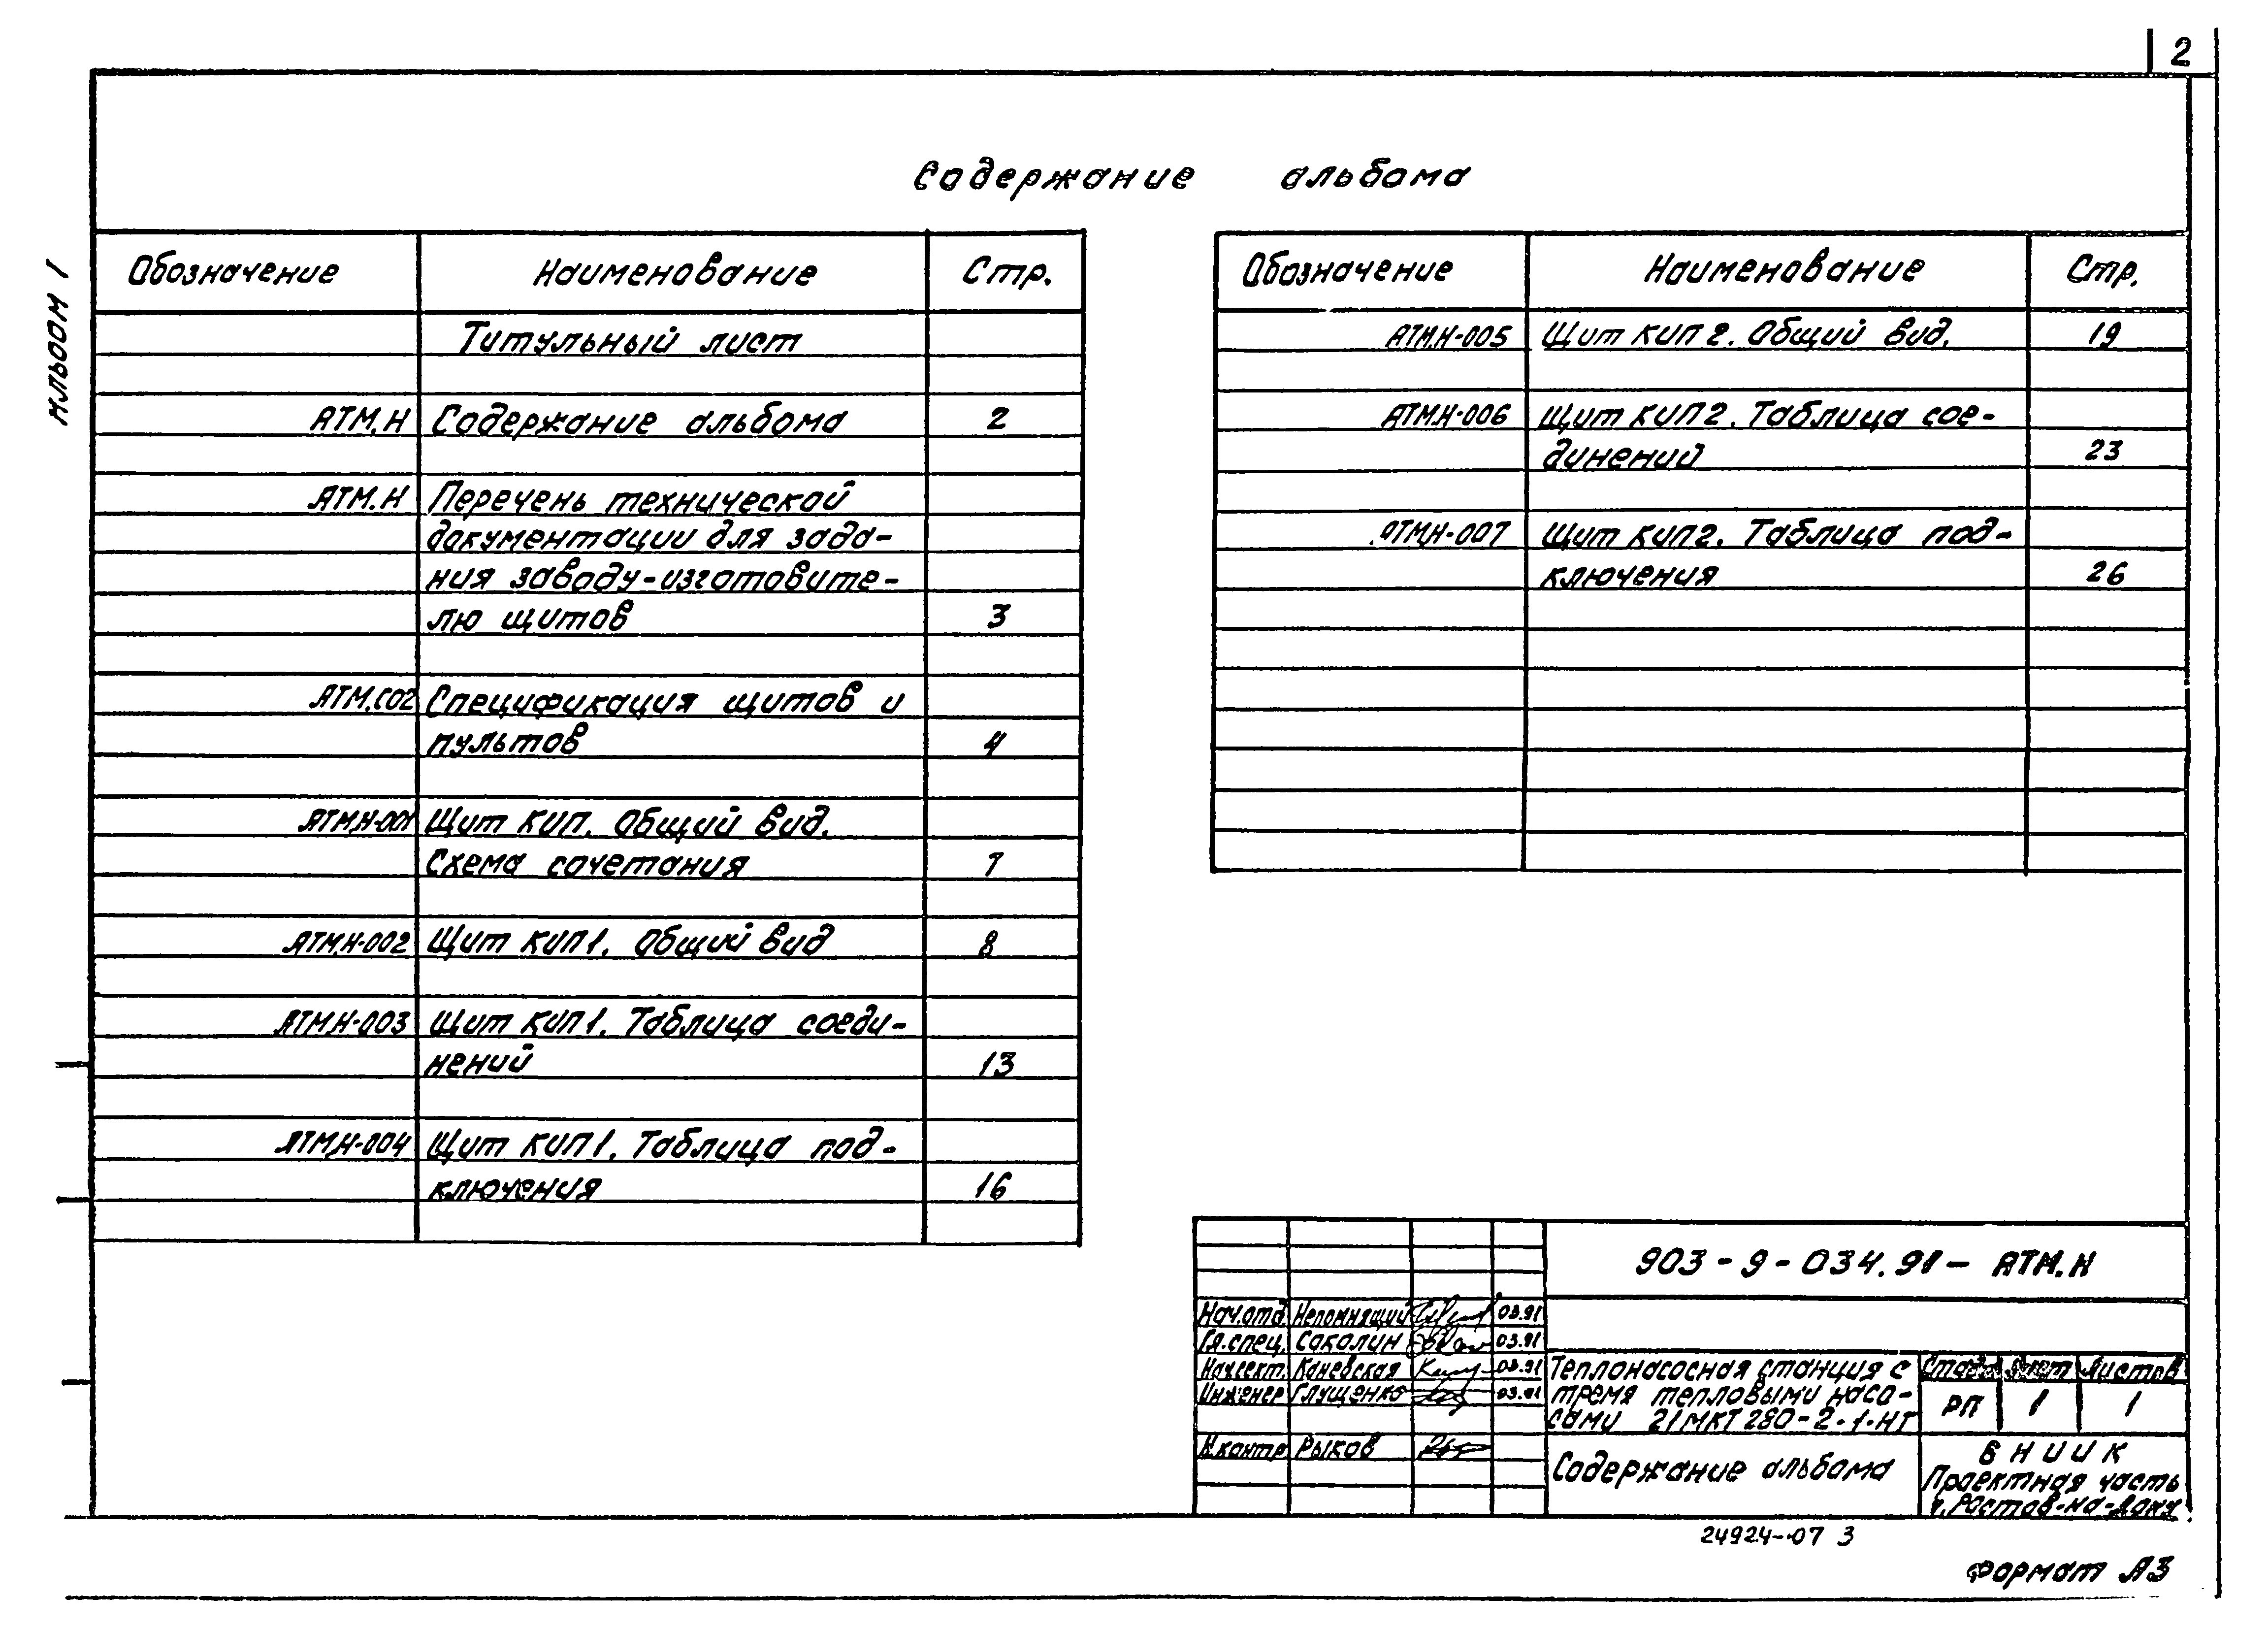 2
Альбом 1
Содержание альбома
Обозначение Наименование Стр.
Титульный лист
АТМ.Н Содержание альбома 2
АТМ.Н Перечень технической
документации для зада-
ния заводу-изготовите-
лю щитов 3
АТМ.С02 Спецификация щитов и
пультов 4
АТМ.Н-001 Щит КИП. Общий вид.
Схема сочетания 7
АТМ.Н-002 Щит КИП1. Общий вид 8
АТМ.Н-003 Щит КИП1. Таблица соеди-
нений 13
АТМ.Н-004 Щит КИП1. Таблица под-
ключения 16
Обозначение Наименование Стр.
АТМ.Н-005 Щит КИП2. Общий вид. 19
АТМ.Н-006 Щит КИП2. Таблица сое-
динений 23
АТМ.Н-007 Щит КИП2. Таблица под-
ключения 26
903-9-034.91- АТМ.Н
Нач.отд. Непомнящий 03.91
Гл.спец. Соколин 03.91
Нач.сект. Каневская 03.91
Инженер Глущенко 03.91
Н.контр Рыков
Теплонасосная станция с
тремя тепловыми насо-
сами 21МКТ280-2-1-НТ
Стадия Лист Листов
РП 1 1
Содержание альбома
ВНИИК
Проектная часть
г. Ростов-на-Дону
24924-07 3
Формат А3